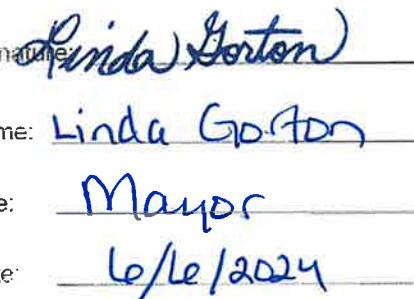 nature: Linda Gorton
me: Linda Gorton
e: Mayor
te: 6/6/2024